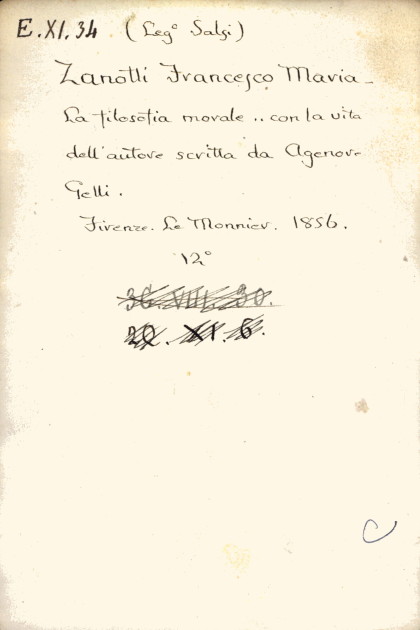 E.XI.34 (Leg° Salsi)
Zanotti Francesco Maria -
La filosofia morale .. con la vita
dell'autore scritta da Agenor-
Gelli.
Firenze. Le Monnier. 1856.
12°
36.VIII.30.
20.XI.6.
C